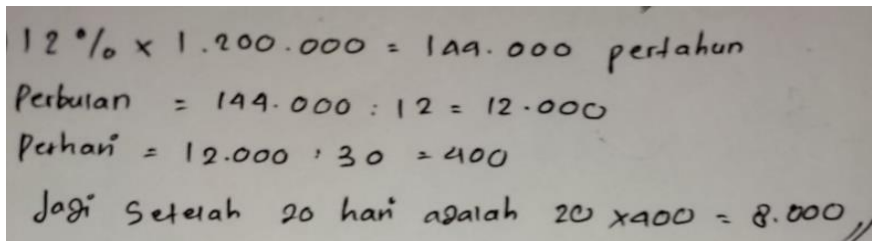 12% x 1.200.000 = 144.000 pertahun
Perbulan = 144.000 : 12 = 12.000
Perhari = 12.000 : 30 = 400
Jadi setelah 20 hari adalah 20 x 400 = 8.000,,